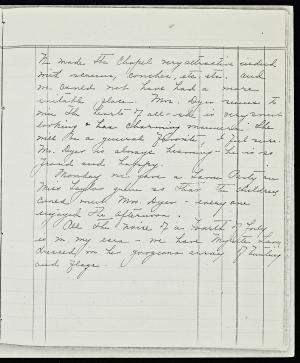 made the Chapel very attractive indeed
with screens, couches, etc. etc. and
we could not have had a more
suitable place. Mrs. Dyer seems to
win the hearts of all - she is very sweet
looking & has charming manners. She
will be a general favorite, I feel sure.
Mr. Dyer is always beaming - he is so
proud and happy.
Monday we gave a Lawn Party in
Miss grounds so that the children
could meet Mrs. Dyer - every one
enjoyed the afternoon.
All the noise of a Fourth of July
is in my ears - we have
dressed in her gorgeous array of bunting
and flags.